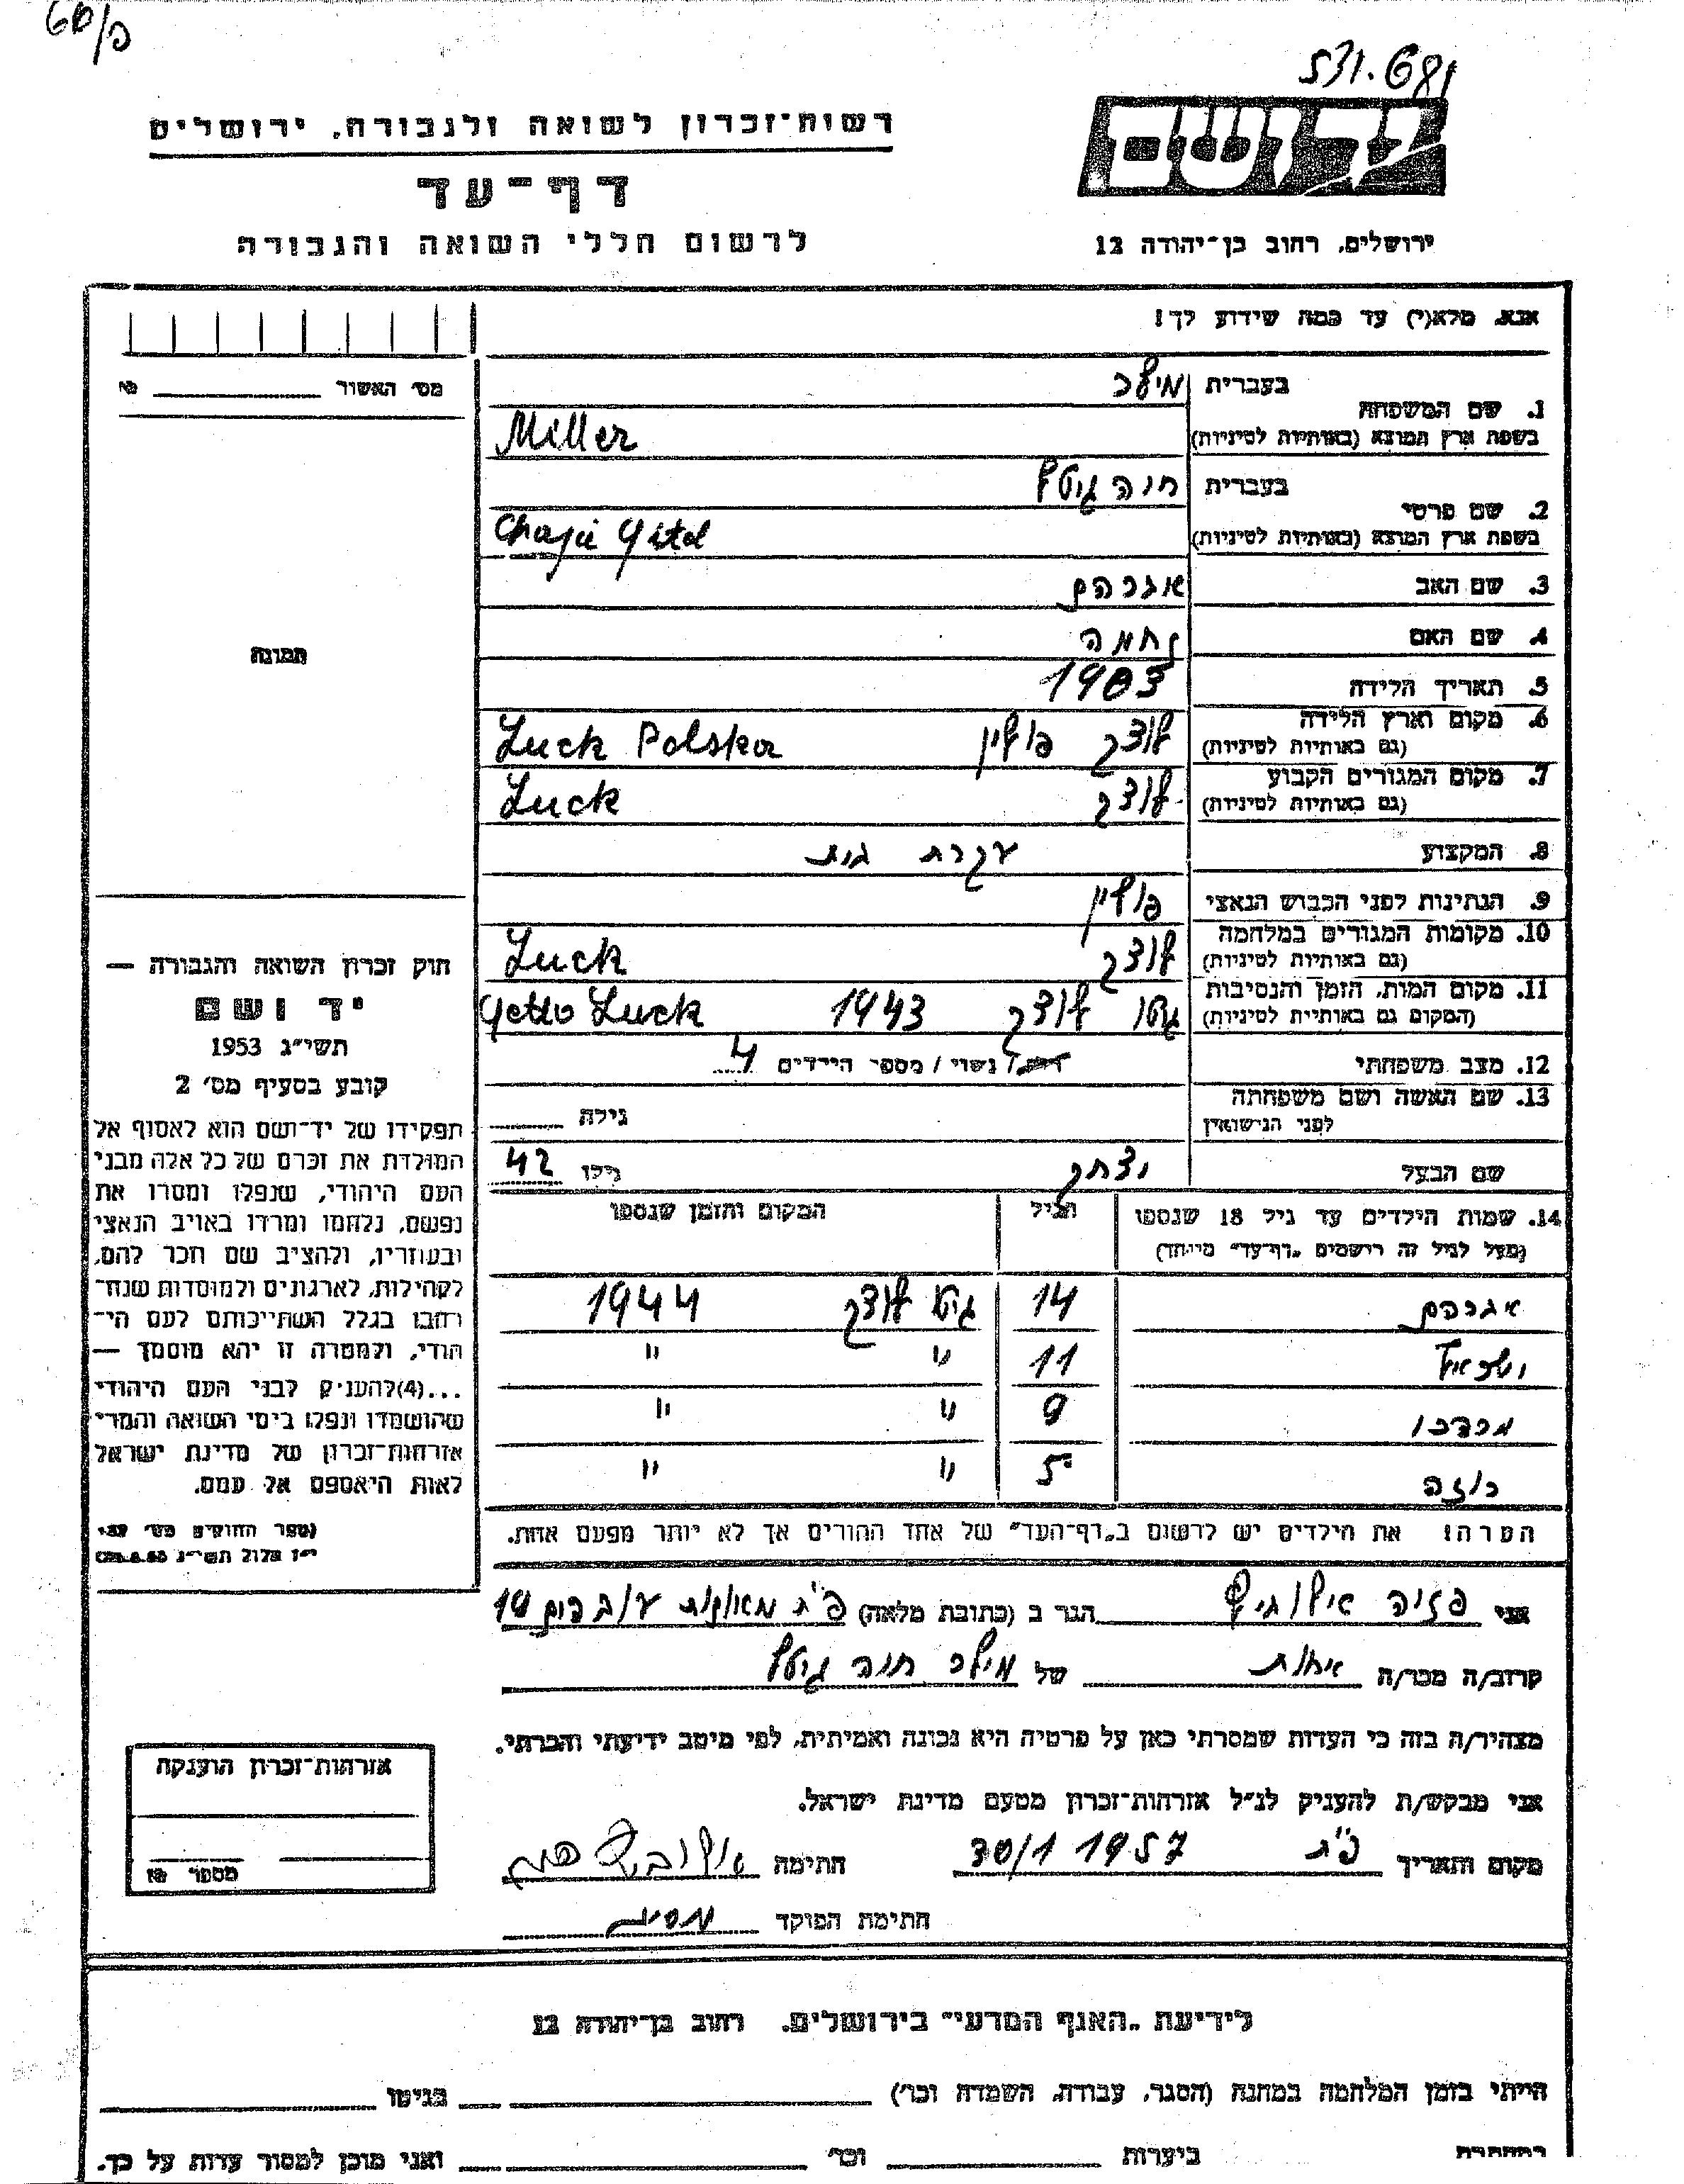 60/פ
531.681
יד ושם
רשות־זכרון לשואה ולגבורה, ירושלים
דף־עד
לרשום חללי השואה והגבורה
ירושלים, רחוב בן־יהודה 12
אנא, מלא(י) עד כמה שידוע לך!
מס׳ האשור
1. שם המשפחה
בעברית מילר
בשפת ארץ המוצא (באותיות לטיניות) Miller
2. שם פרטי
בעברית חיה גיטל
בשפת ארץ המוצא (באותיות לטיניות) Chaja Gitel
3. שם האב אברהם
4. שם האם נחמה
5. תאריך הלידה 1903
6. מקום וארץ הלידה (גם באותיות לטיניות) לוצק פולין Luck Polska
7. מקום המגורים הקבוע (גם באותיות לטיניות) לוצק Luck
8. המקצוע עקרת בית
9. הנתינות לפני הכבוש הנאצי פולין
10. מקומות המגורים במלחמה (גם באותיות לטיניות) לוצק Luck
11. מקום המות, הזמן והנסיבות (המקום גם באותיות לטיניות) גטו לוצק 1943 Getto Luck
12. מצב משפחתי נשוי / מספר הילדים 4
13. שם האשה ושם משפחתה לפני הנישואין גילה
שם הבעל יצחק גילו 42
14. שמות הילדים עד גיל 18 שנספו הגיל המקום והזמן שנספו
(מעל לגיל זה רושמים „דף־עד״ מיוחד)
אברהם 14 גיטו לוצק 1944
ישראל 11 " "
מרדכי 9 " "
רוזה 5 " "
הערה: את הילדים יש לרשום ב„דף־העד״ של אחד ההורים אך לא יותר מפעם אחת.
תמונה
חוק זכרון השואה והגבורה —
יד ושם
תשי״ג 1953
קובע בסעיף מס׳ 2
תפקידו של יד־ושם הוא לאסוף אל
המולדת את זכרם של כל אלה מבני
העם היהודי, שנפלו ומסרו את
נפשם, נלחמו ומרדו באויב הנאצי
ובעוזריו, ולהציב שם וזכר להם,
לקהילות, לארגונים ולמוסדות שנח־
רחבו בגלל השתייכותם לעם הי־
הודי, ולמטרה זו יהא מוסמך —
...(4) להעניק לבני העם היהודי
שהושמדו ונפלו בימי השואה והמרי
אזרחות־זכרון של מדינת ישראל
לאות היאספם אל עמם.
(ספר החוקים מס׳ 132,
י״ז אלול תשי״ג 28.8.53)
אני פזיה הגר ב (כתובת מלאה) פ״ת
קרוב/ה מכר/ה אחות של מילר חיה גיטל
מצהיר/ה בזה כי העדות שמסרתי כאן על פרטיה היא נכונה ואמיתית, לפי מיטב ידיעתי והכרתי.
אני מבקש/ת להעניק לנ״ל אזרחות־זכרון מטעם מדינת ישראל.
מקום ותאריך פ״ת 30/1 1957 חתימה
חתימת הפוקד
אזרחות־זכרון הוענקה
מספר
לידיעת „האגף המדעי״ בירושלים, רחוב בן־יהודה 12
הייתי בזמן המלחמה במחנה (הסגר, עבודה, השמדה וכו׳) בגיטו
במחתרת ביערות וכו׳ ואני מוכן למסור עדות על כך.